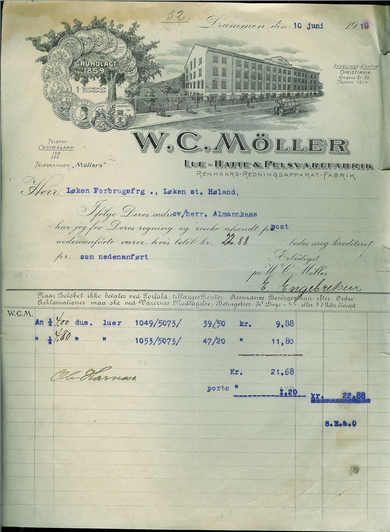 52.
Drammen den 10 juni 1919
GRUNDLAGT
1859
W. C. MÖLLER
ULL- HATTE & PELSVAREFABRIK
RENHAARS-REDNINGSAPPARAT-FABRIK
TELEFON
CENTRALBORD
TELEGRAMADR. "Möllers"
Herr Løken Forbrugsfrg ., Løken st, Høland,
Ifølge Deres ordre v/herr. Almannkaas
har jeg for Deres regning og risiko afsendt pr post
nedenanførte varer, hvis beløb kr. 22.88 bedes mig krediteret
pr. som nedenanført Ærbødigst
W. C. Möller
E. Engebretsen
W.C.M.
An ½ 4/00 dus. luer 1049/5073/ 39/50 kr. 9,88
" ½ 4/80 " " 1053/5073/ 47/20 " 11,80
Kr. 21,68
porto " 1,20 kr. 22,88
S.E.& O